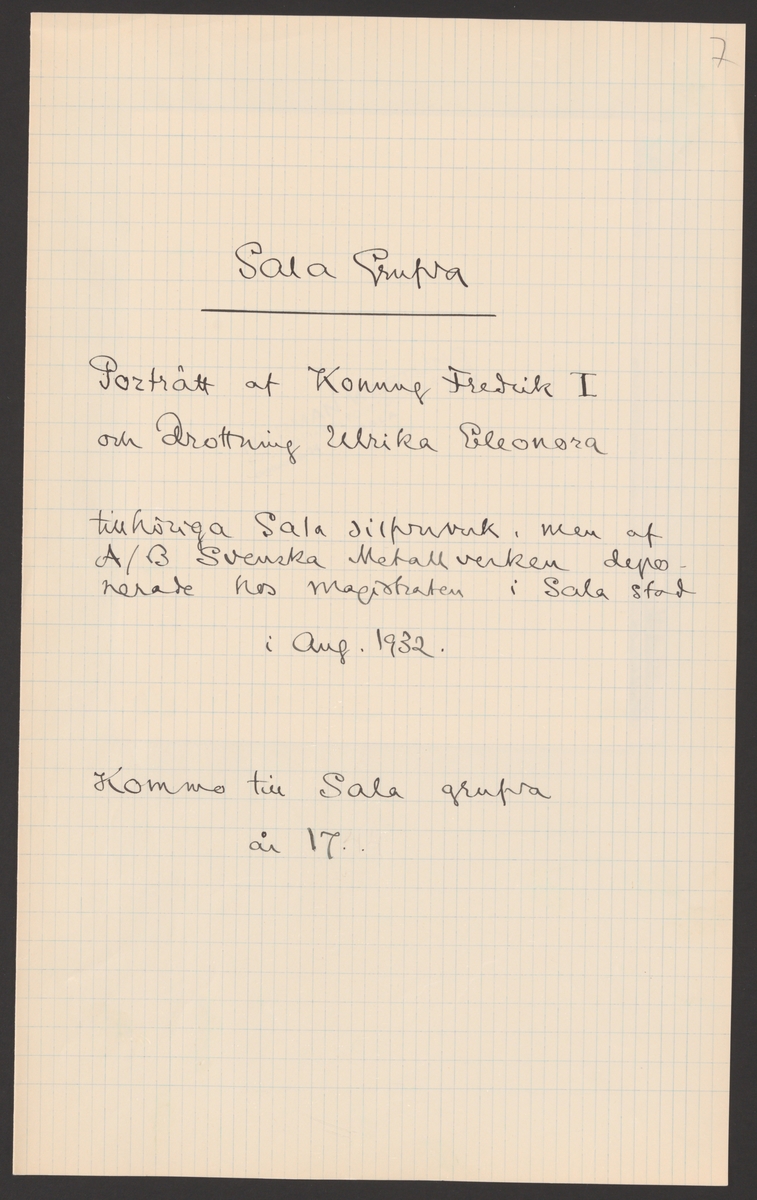 7
Sala Grufva
Porträtt af Konung Fredrik I
och Drottning Ulrika Eleonora
tillhöriga Sala silfververk, men af
A/B Svenska Metallverken depo-
nerade hos Magistraten i Sala stad
i Aug. 1932.
Kommo till Sala grufva
år 17..